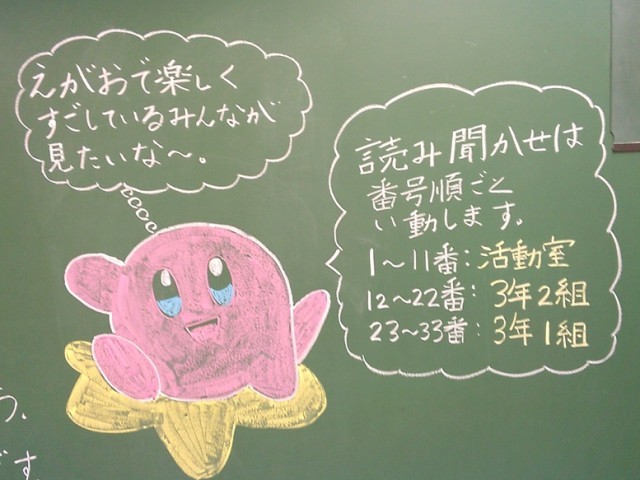 えがおで楽しく
すごしているみんなが
見たいな〜。
読み聞かせは
番号順ごと
い動します。
1〜11番:活動室
12〜22番:3年2組
23〜33番:3年1組
う、
す